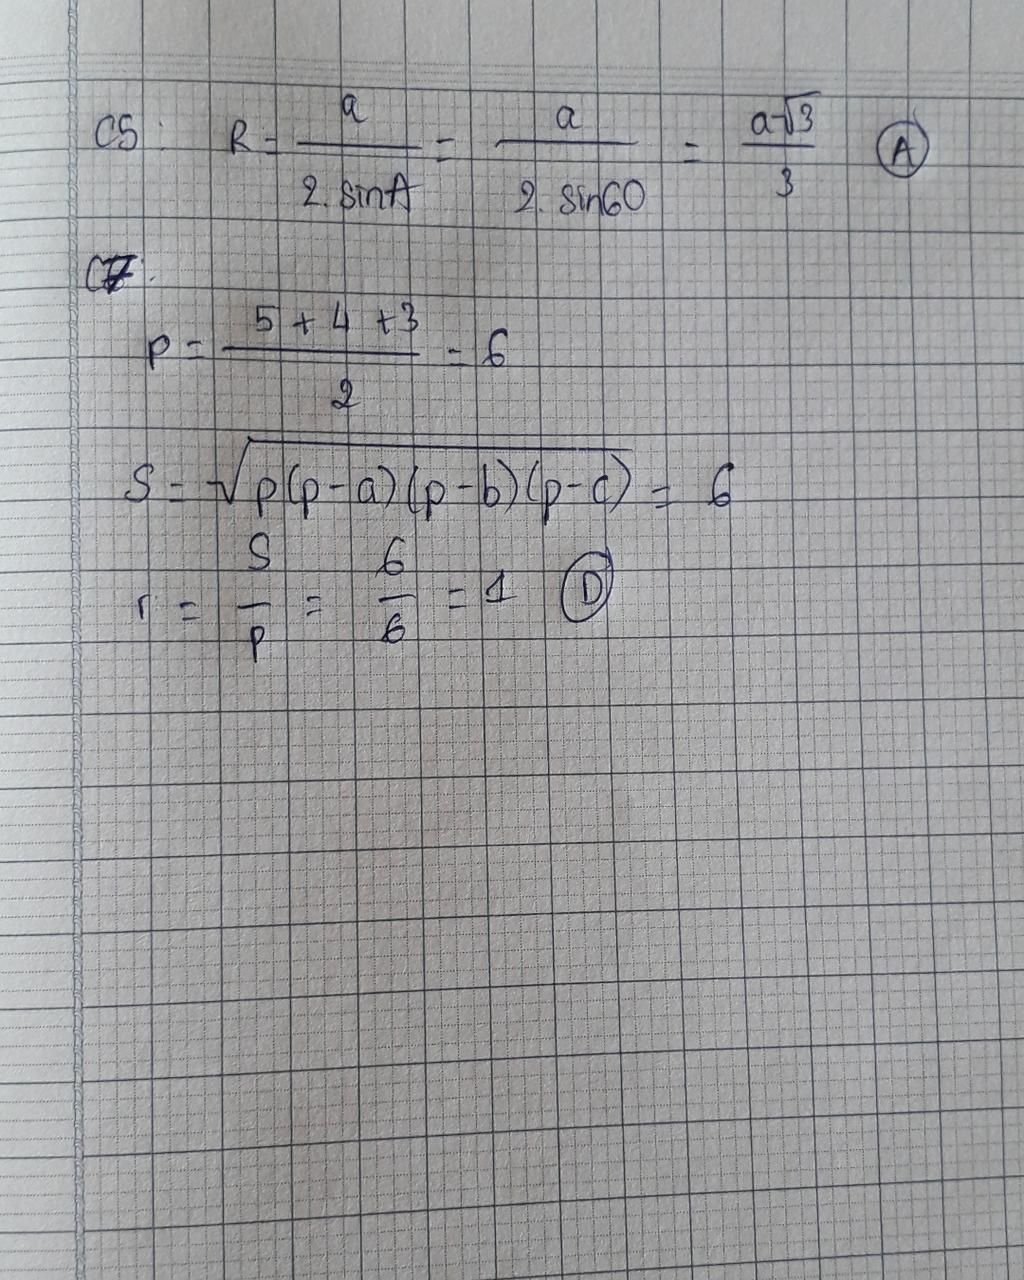 C5: R = a / 2.sinA = a / 2.sin60 = a√3 / 3 (A)
C7:
p = 5 + 4 + 3 / 2 = 6
S = √p(p-a)(p-b)(p-c) = 6
r = S / p = 6 / 6 = 1 (D)